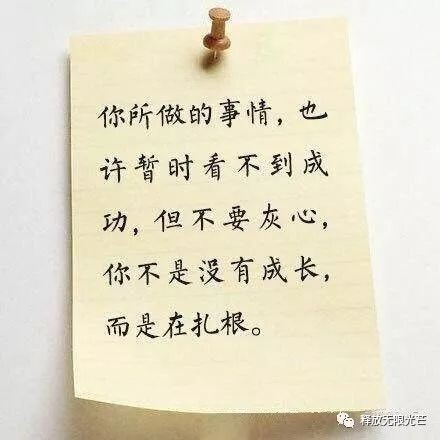 你所做的事情，也
许暂时看不到成
功，但不要灰心，
你不是没有成长，
而是在扎根。
释放无限光芒